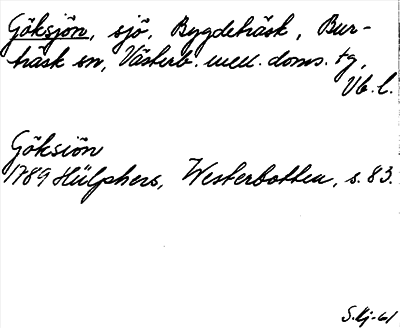 Göksjön, sjö, Bygdeträsk, Bur-
träsk sn, Västerb. mell. doms. tg,
Vb. l.
Göksiön
1789 Hülphers, Westerbotten, s. 83.
S.Kj-61